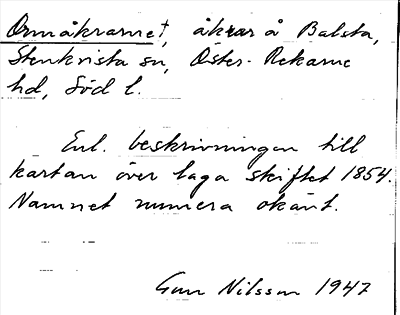 Ormåkrarne†, åkrar å Balsta,
Stenkvista sn, Öster-Rekarne
hd, Söd l.
Enl. beskrivningen till
kartan över laga skiftet 1854.
Namnet numera okänt.
Gun Nilsson 1947